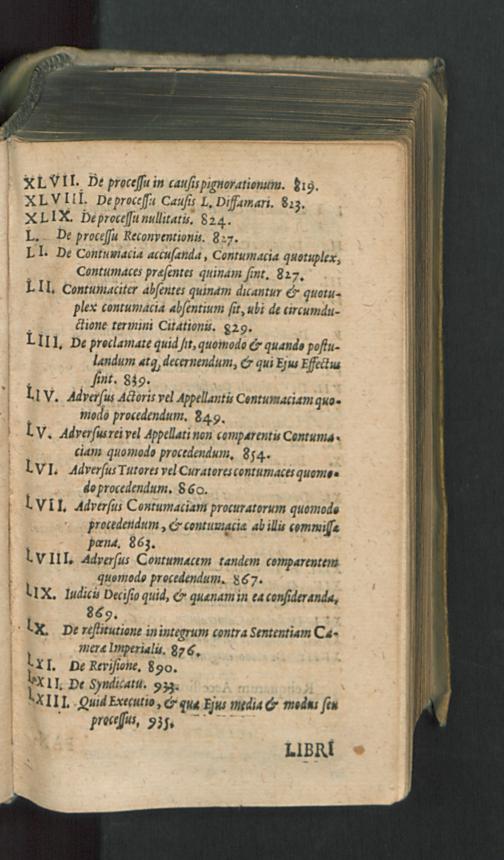 XLVII. De processu in causis pignorationum. 819.
XLVIII. De processu Causis L. Diffamari. 823.
XLIX. De processu nullitatis. 824.
L. De processu Reconventionis. 827.
LI. De Contumacia accusanda, Contumacia quotuplex,
Contumaces præsentes quinam sint. 827.
LII. Contumaciter absentes quinam dicantur & quotu-
plex contumacia absentium sit, ubi de circumdu-
ctione termini Citationis. 829.
LIII. De proclamate quid sit, quomodo & quando postu-
landum atq; decernendum, & qui Ejus Effectus
sint. 839.
LIV. Adversus Actoris vel Appellantis Contumaciam quo-
modo procedendum. 849.
LV. Adversus rei vel Appellati non comparentis Contuma-
ciam quomodo procedendum. 854.
LVI. Adversus Tutores vel Curatores contumaces quomo-
do procedendum. 860.
LVII. Adversus Contumaciam procuratorum quomodo
procedendum, & contumacia ab illis commissæ
pœna. 863.
LVIII. Adversus Contumacem tandem comparentem
quomodo procedendum. 867.
LIX. Iudicii Decisio quid, & quænam in ea consideranda,
869.
LX. De restitutione in integrum contra Sententiam Ca-
meræ Imperialis. 876.
LXI. De Revisione. 890.
LXII. De Syndicatu. 933.
LXIII. Quid Executio, & quæ Ejus media & modus seu
processus, 935.
LIBRI